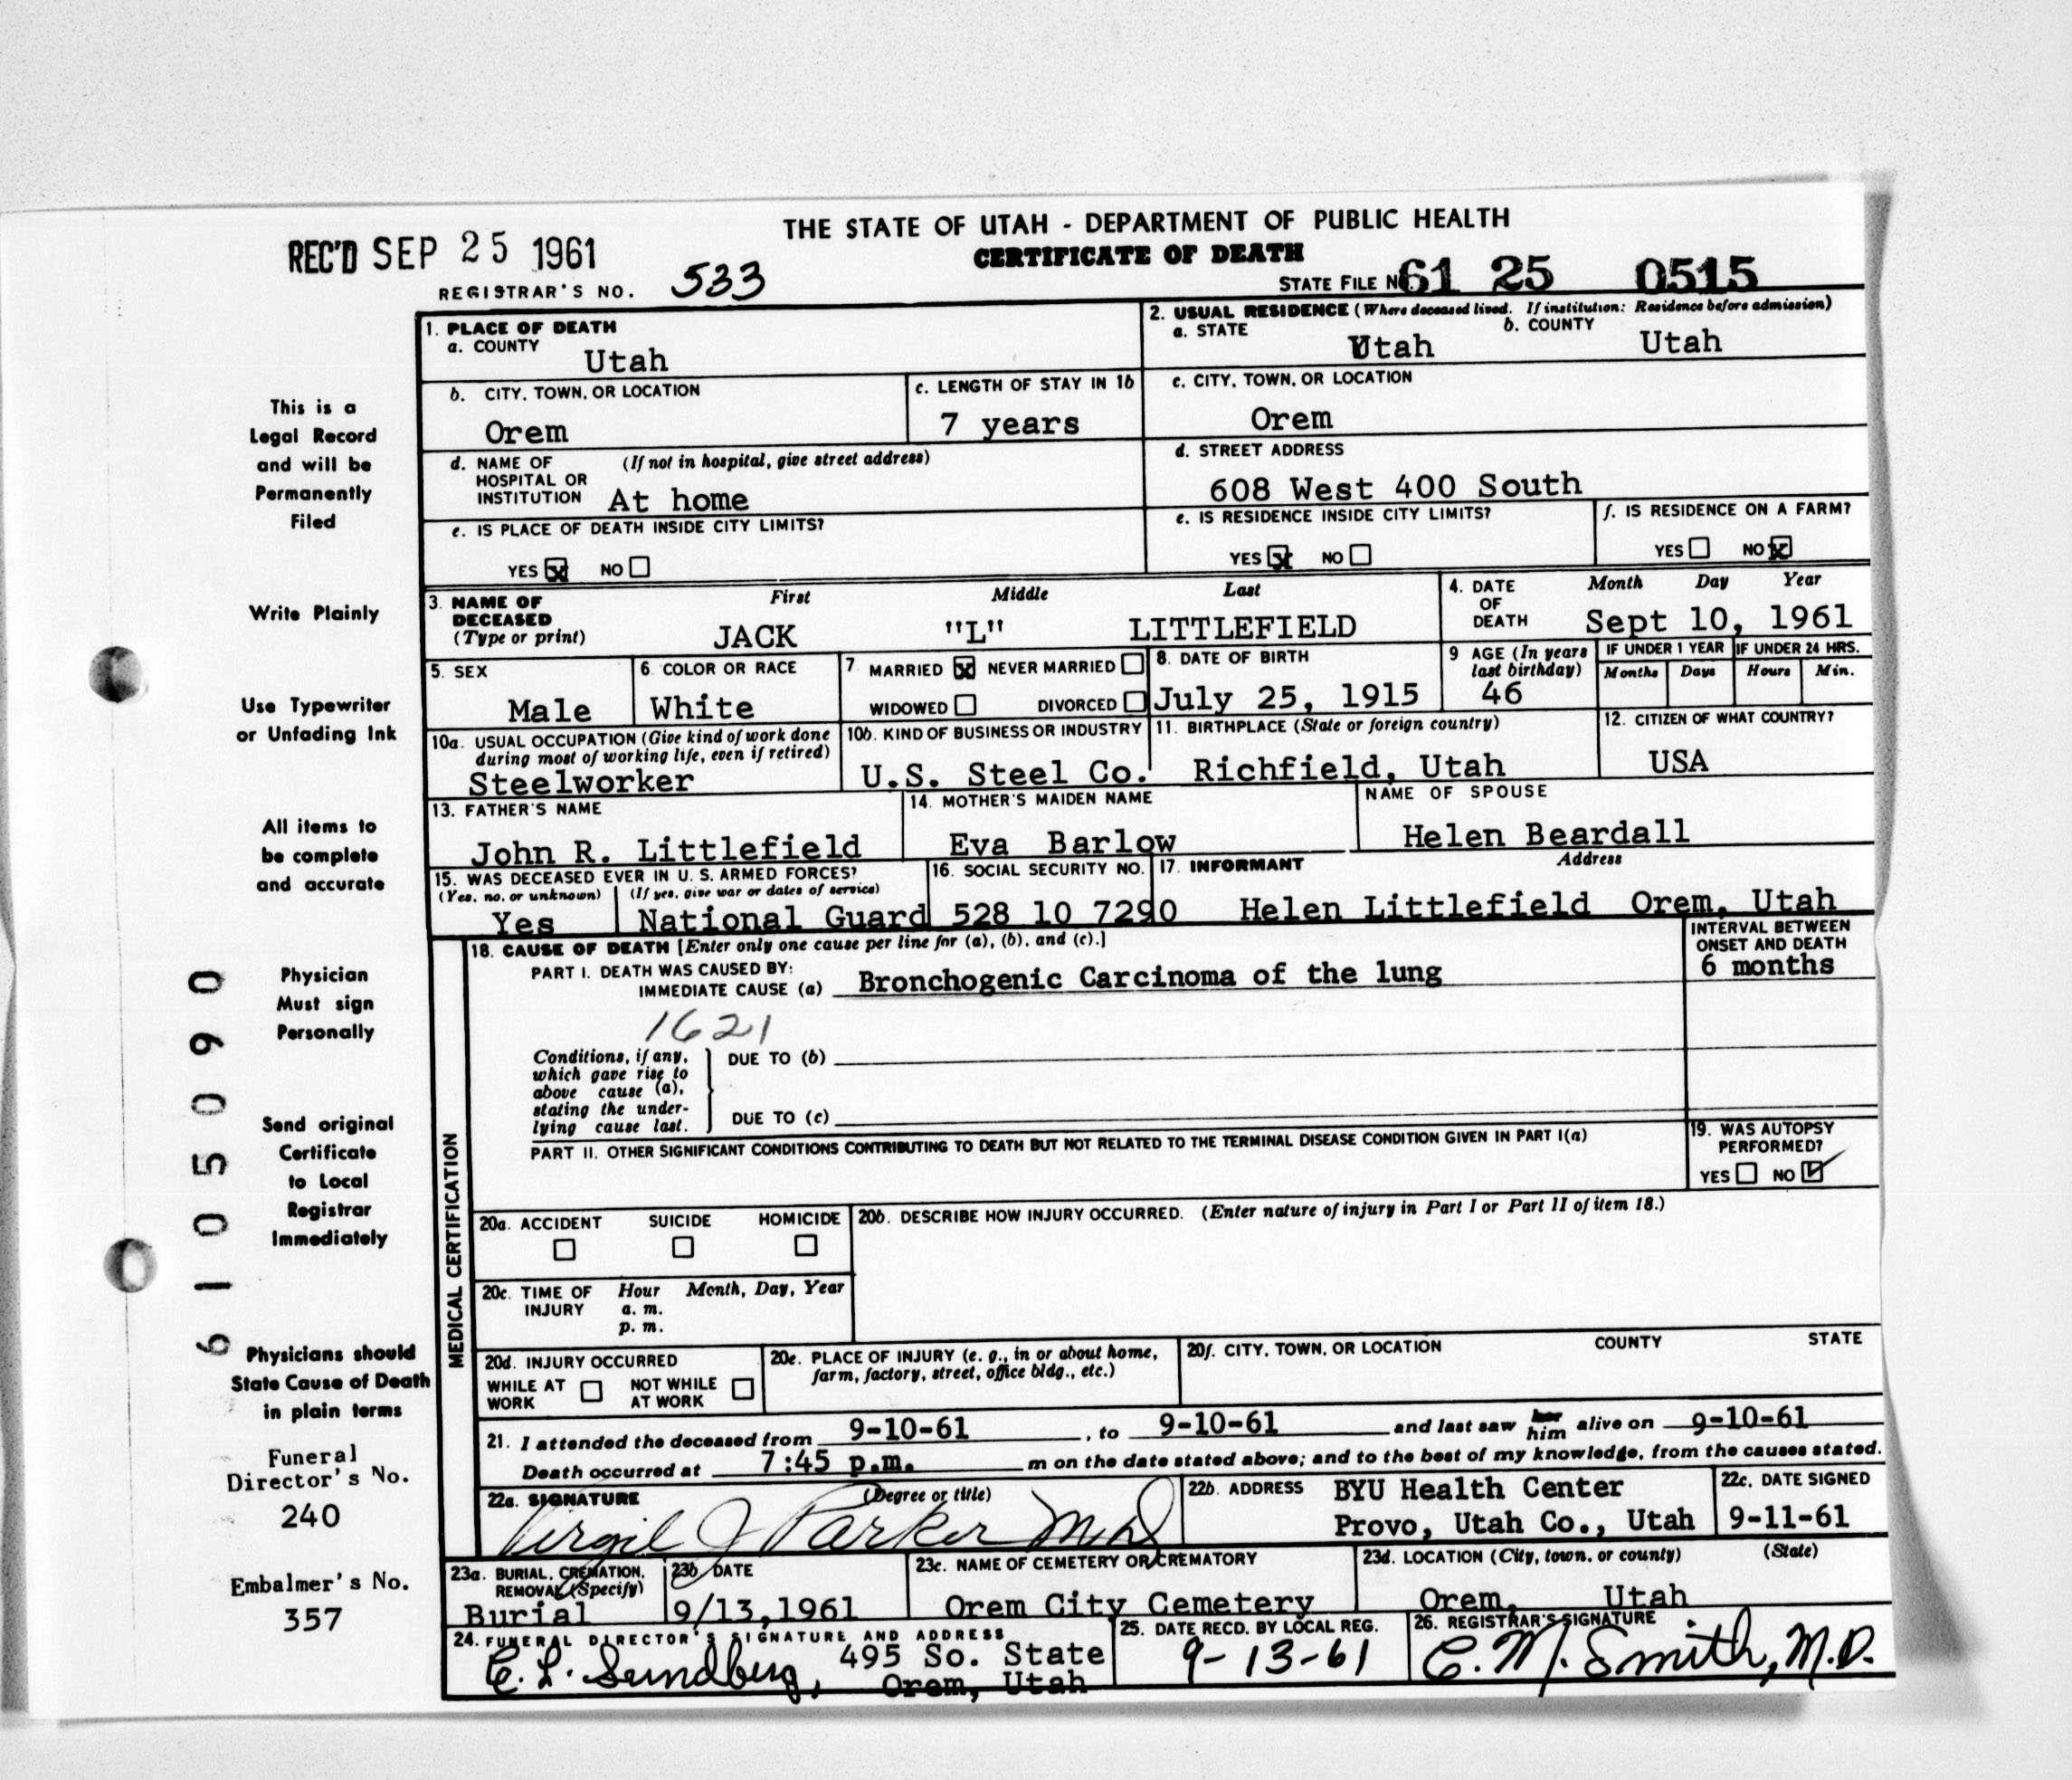 THE STATE OF UTAH - DEPARTMENT OF PUBLIC HEALTH
CERTIFICATE OF DEATH
REC'D SEP 25 1961
REGISTRAR'S NO. 533
STATE FILE NO. 61 25 0515
This is a
Legal Record
and will be
Permanently
Filed
Write Plainly
Use Typewriter
or Unfading Ink
All items to
be complete
and accurate
Physician
Must sign
Personally
Send original
Certificate
to Local
Registrar
Immediately
Physicians should
State Cause of Death
in plain terms
Funeral
Director's No.
240
Embalmer's No.
357
6105090
1. PLACE OF DEATH
a. COUNTY
Utah
2. USUAL RESIDENCE (Where deceased lived. If institution: Residence before admission)
a. STATE Utah b. COUNTY Utah
b. CITY, TOWN, OR LOCATION
Orem
c. LENGTH OF STAY IN 1b
7 years
c. CITY, TOWN, OR LOCATION
Orem
d. NAME OF HOSPITAL OR INSTITUTION (If not in hospital, give street address)
At home
d. STREET ADDRESS
608 West 400 South
e. IS PLACE OF DEATH INSIDE CITY LIMITS?
YES X NO
e. IS RESIDENCE INSIDE CITY LIMITS?
YES X NO
f. IS RESIDENCE ON A FARM?
YES NO X
3. NAME OF DECEASED (Type or print)
First Middle Last
JACK "L" LITTLEFIELD
4. DATE OF DEATH Month Day Year
Sept 10, 1961
5. SEX
Male
6. COLOR OR RACE
White
7. MARRIED X NEVER MARRIED
WIDOWED DIVORCED
8. DATE OF BIRTH
July 25, 1915
9 AGE (In years last birthday)
46
IF UNDER 1 YEAR IF UNDER 24 HRS.
Months Days Hours Min.
10a. USUAL OCCUPATION (Give kind of work done during most of working life, even if retired)
Steelworker
10b. KIND OF BUSINESS OR INDUSTRY
U.S. Steel Co.
11. BIRTHPLACE (State or foreign country)
Richfield, Utah
12. CITIZEN OF WHAT COUNTRY?
USA
13. FATHER'S NAME
John R. Littlefield
14. MOTHER'S MAIDEN NAME
Eva Barlow
NAME OF SPOUSE
Helen Beardall
15. WAS DECEASED EVER IN U. S. ARMED FORCES?
(Yes, no, or unknown) (If yes, give war or dates of service)
Yes National Guard
16. SOCIAL SECURITY NO.
528 10 7290
17. INFORMANT Address
Helen Littlefield Orem, Utah
MEDICAL CERTIFICATION
18. CAUSE OF DEATH [Enter only one cause per line for (a), (b), and (c).]
INTERVAL BETWEEN ONSET AND DEATH
PART I. DEATH WAS CAUSED BY:
IMMEDIATE CAUSE (a) Bronchogenic Carcinoma of the lung
6 months
1621
Conditions, if any, which gave rise to above cause (a), stating the underlying cause last.
DUE TO (b)
DUE TO (c)
PART II. OTHER SIGNIFICANT CONDITIONS CONTRIBUTING TO DEATH BUT NOT RELATED TO THE TERMINAL DISEASE CONDITION GIVEN IN PART I(a)
19. WAS AUTOPSY PERFORMED?
YES NO ✓
20a. ACCIDENT SUICIDE HOMICIDE
20b. DESCRIBE HOW INJURY OCCURRED. (Enter nature of injury in Part I or Part II of item 18.)
20c. TIME OF INJURY Hour Month, Day, Year
a. m.
p. m.
20d. INJURY OCCURRED
WHILE AT WORK NOT WHILE AT WORK
20e. PLACE OF INJURY (e. g., in or about home, farm, factory, street, office bldg., etc.)
20f. CITY, TOWN, OR LOCATION COUNTY STATE
21. I attended the deceased from 9-10-61, to 9-10-61 and last saw her him alive on 9-10-61
Death occurred at 7:45 p.m. m on the date stated above; and to the best of my knowledge, from the causes stated.
22a. SIGNATURE (Degree or title)
Virgil J Parker MD
22b. ADDRESS
BYU Health Center
Provo, Utah Co., Utah
22c. DATE SIGNED
9-11-61
23a. BURIAL, CREMATION, REMOVAL (Specify)
Burial
23b. DATE
9/13,1961
23c. NAME OF CEMETERY OR CREMATORY
Orem City Cemetery
23d. LOCATION (City, town, or county) (State)
Orem, Utah
24. FUNERAL DIRECTOR'S SIGNATURE AND ADDRESS
C. L. Sundberg, 495 So. State
Orem, Utah
25. DATE RECD. BY LOCAL REG.
9-13-61
26. REGISTRAR'S SIGNATURE
C. M. Smith, M.D.